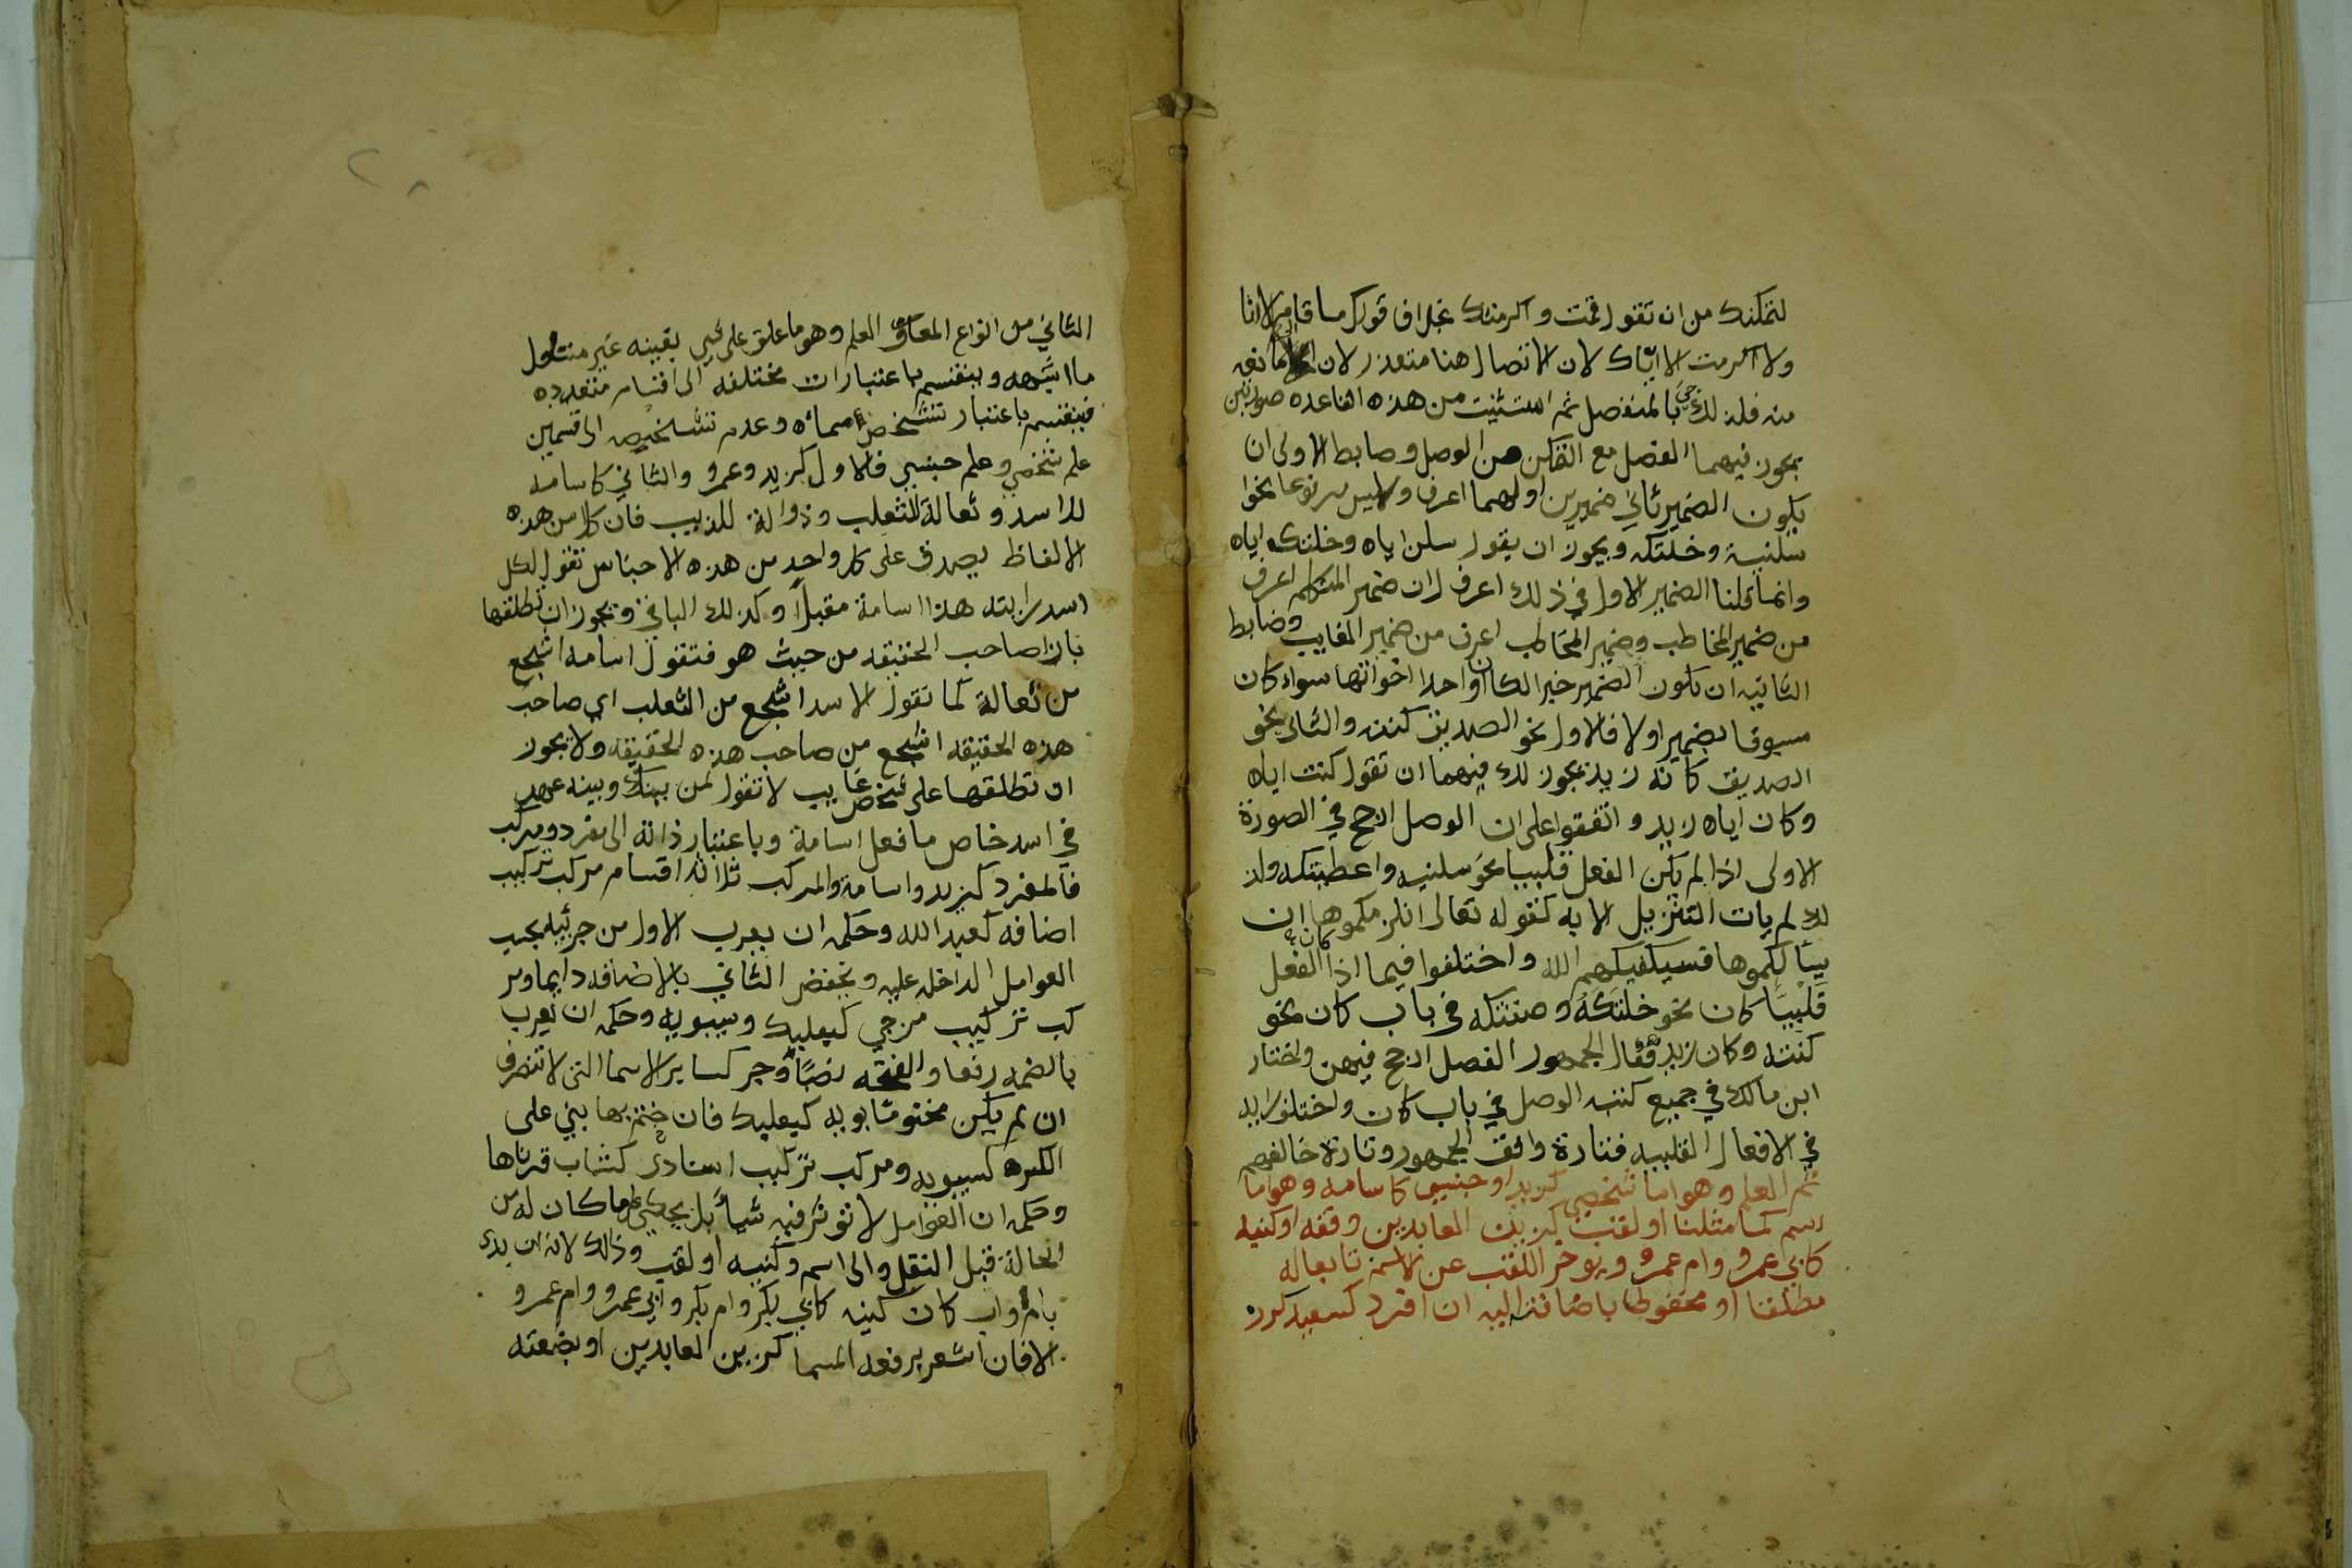 لتمكنك من ان تقول قمت واكرمتك بخلاف قولك ما قام الا انا
ولا اكرمت الا اياك لان الاتصال هنا متعذر لان الا مانعه
منه فلذلك جي بالمنفصل ثم استثنيت من هذه القاعده صورتين
يجوز فيهما الفصل مع التمكن من الوصل وضابط الاولى ان
يكون الضمير ثاني ضميرين اولهما اعرف وليس مرفوعا نحوا
سلنيه وخلتكه ويجوز ان يقول سلنى اياه وخلتك اياه
وانما قلنا الضمير الاول في ذلك اعرف لان ضمير المتكلم اعرف
من ضمير المخاطب وضمير المخاطب اعرف من ضمير الغايب وضابط
الثانيه ان يكون الضمير خبرا لكان او احدا اخواتها سواء كان
مسبوقا بضمير اولا فالاول نحو الصديق كنته والثانى نحو
الصديق كانه زيد يجوز لك فيهما ان تقول كنت اياه
وكان اياه زيد واتفقوا على ان الوصل ارجح في الصورة
الاولى اذا لم يكن الفعل قلبيا نحو سلنيه واعطيتكه ولذ
لك لم يات التنزيل الا به كقوله تعالى انلزمكموها ان
يسألكموها فسيكفيكهم الله واختلفوا فيما اذا كان الفعل
قلبيا كان نحو خلتكه وظننتكه في باب كان نحو
كنته وكانه زيد فقال الجمهور الفصل ارجح فيهن واختار
ابن مالك في جميع كتبه الوصل في باب كان واختلف رايه
في الافعال القلبيه فتارة وافق الجمهور وتارة خالفهم
ثم العلم وهو اما شخصي كزيد او جنسي كاسامه وهو اما
اسم كما مثلنا او لقب كزين العابدين وقفه او كنيه
كابي عمرو وام عمرو ويوخر اللقب عن الاسم تابعا له
مطلقا او مخفوظا باضافته اليه ان افرد كسعيد كرز
الثاني من انواع المعارف العلم وهو ما علق على شي بعينه غير متناول
ما اشبهه وينقسم باعتبارات مختلفه الى اقسام متعدده
فينقسم باعتبار تشخص مسماه وعدم تشخيصه الى قسمين
علم شخصي وعلم جنسي فالاول كزيد وعمرو والثاني كاسامه
للاسد وثعالة للثعلب وذوالة للذيب فان كلا من هذه
الالفاظ يصدق على كل واحد من هذه الاجناس تقول لكل
اسد رايته هذا اسامة مقبلاً وكذلك الباقي ويجوز ان تطلقها
بازا صاحب الحقيقه من حيث هو فتقول اسامه اشجع
من ثعالة كما تقول الاسد اشجع من الثعلب اي صاحب
هذه الحقيقه اشجع من صاحب هذه الحقيقه ولا يجوز
ان تطلقها على شخص غايب لا تقول لمن بينك وبينه عهد
في اسد خاص ما فعل اسامة وباعتبار ذاته الى مفرد ومركب
فالمفرد كزيد واسامة والمركب ثلاثة اقسام مركب تركيب
اضافه كعبد الله وحكمه ان يعرب الاول من جزئيه بحسب
العوامل الداخله عليه ويخفض الثاني بالاضافه دايما ومر
كب تركيب مزجي كبعلبك وسيبويه وحكمه ان يعرب
بالضمه رفعا والفتحه نصبًا وجر كساير الاسما التى لا تنصرف
ان لم يكن مختوما بويه كبعلبك فان ختم بها بني على
الكسره كسيبويه ومركب تركيب اسنادي كشاب قرناها
وحكمه ان العوامل لا توثر فيه شيأ بل يحكى على ما كان له من
الحالة قبل النقل والى اسم وكنيه او لقب وذالك لانه ان بدى
بام او اب كان كنيه كابي بكر وام بكر وابي عمرو وام عمرو
الا فان اشعر برفعه المسما كزين العابدين او بضعته